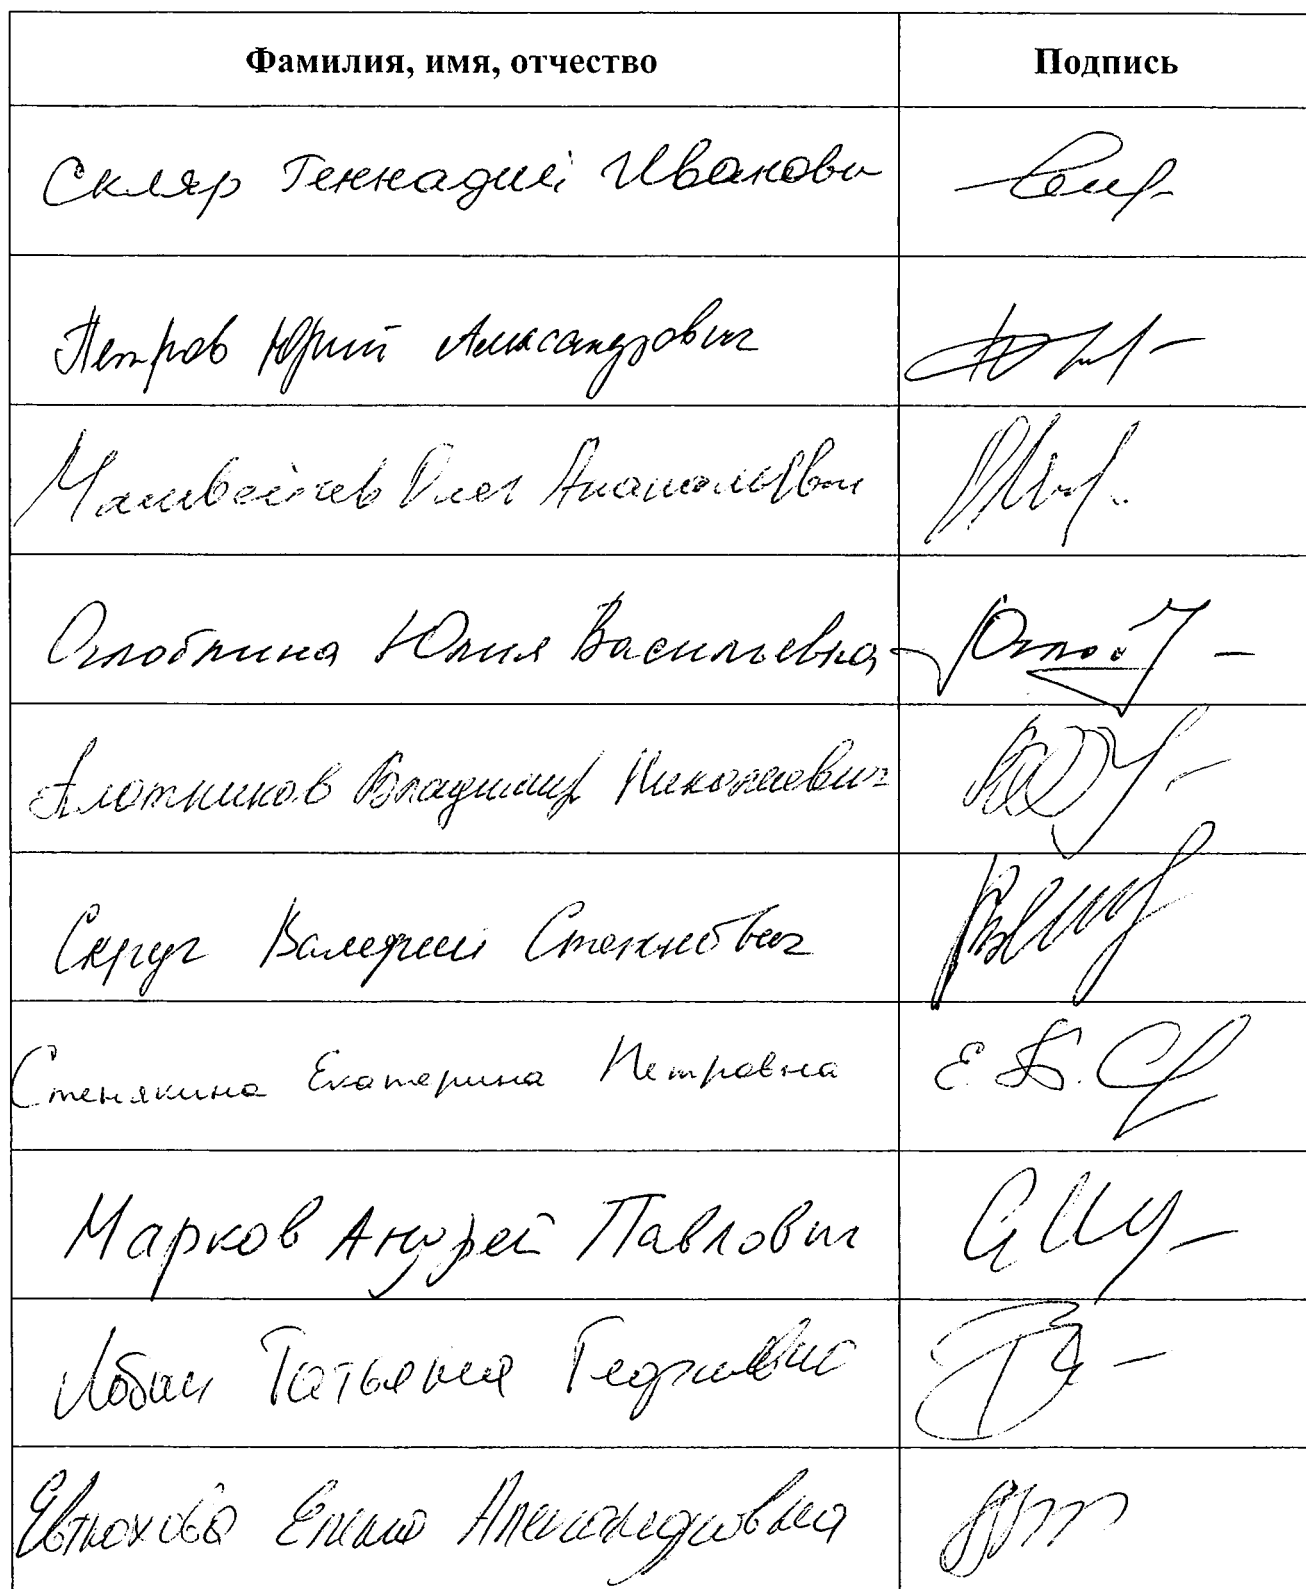 Фамилия, имя, отчество Подпись
Скляр Геннадий Иванович
Петров Юрий Александрович
Матвейчев Олег Анатольевич
Оглоблина Юлия Васильевна
Плотников Владимир Николаевич
Скруг Валерий Степанович
Стенякина Екатерина Петровна
Марков Андрей Павлович
Лобач Татьяна Георгиевна
Евтюхова Елена Александровна